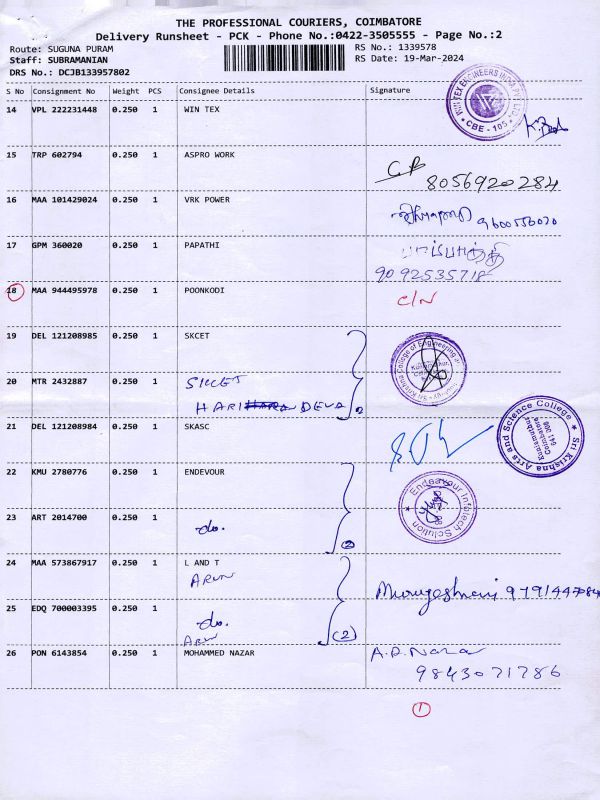 THE PROFESSIONAL COURIERS, COIMBATORE
Delivery Runsheet - PCK - Phone No.:0422-3505555 - Page No.:2
Route: SUGUNA PURAM
RS No.: 1339578
Staff: SUBRAMANIAN
RS Date: 19-Mar-2024
DRS No.: DCJB133957802
S No Consignment No Weight PCS Consignee Details Signature
14 VPL 222231448 0.250 1 WIN TEX
WIN TEX ENGINEERS INDIA PVT LTD. CBE - 105
15 TRP 602794 0.250 1 ASPRO WORK
8056920284
16 MAA 101429024 0.250 1 VRK POWER
9600556020
17 GPM 360020 0.250 1 PAPATHI
பாப்பாத்தி
9092535718
18 MAA 944495978 0.250 1 POONKODI
C/N
19 DEL 121208985 0.250 1 SKCET
Sri Krishna College of Engineering
20 MTR 2432887 0.250 1 SKCET
HARI DEVA 2
21 DEL 121208984 0.250 1 SKASC
Sri Krishna Arts and Science College
Kuniamuthur
Coimbatore
641 008
22 KMU 2780776 0.250 1 ENDEVOUR
Endeavour Infotech Solution
23 ART 2014700 0.250 1 do.
(2)
24 MAA 573867917 0.250 1 L AND T
ARUN
25 EDQ 700003395 0.250 1 do.
ARUN (2)
26 PON 6143854 0.250 1 MOHAMMED NAZAR
A.P. Nazar
9843071786
1